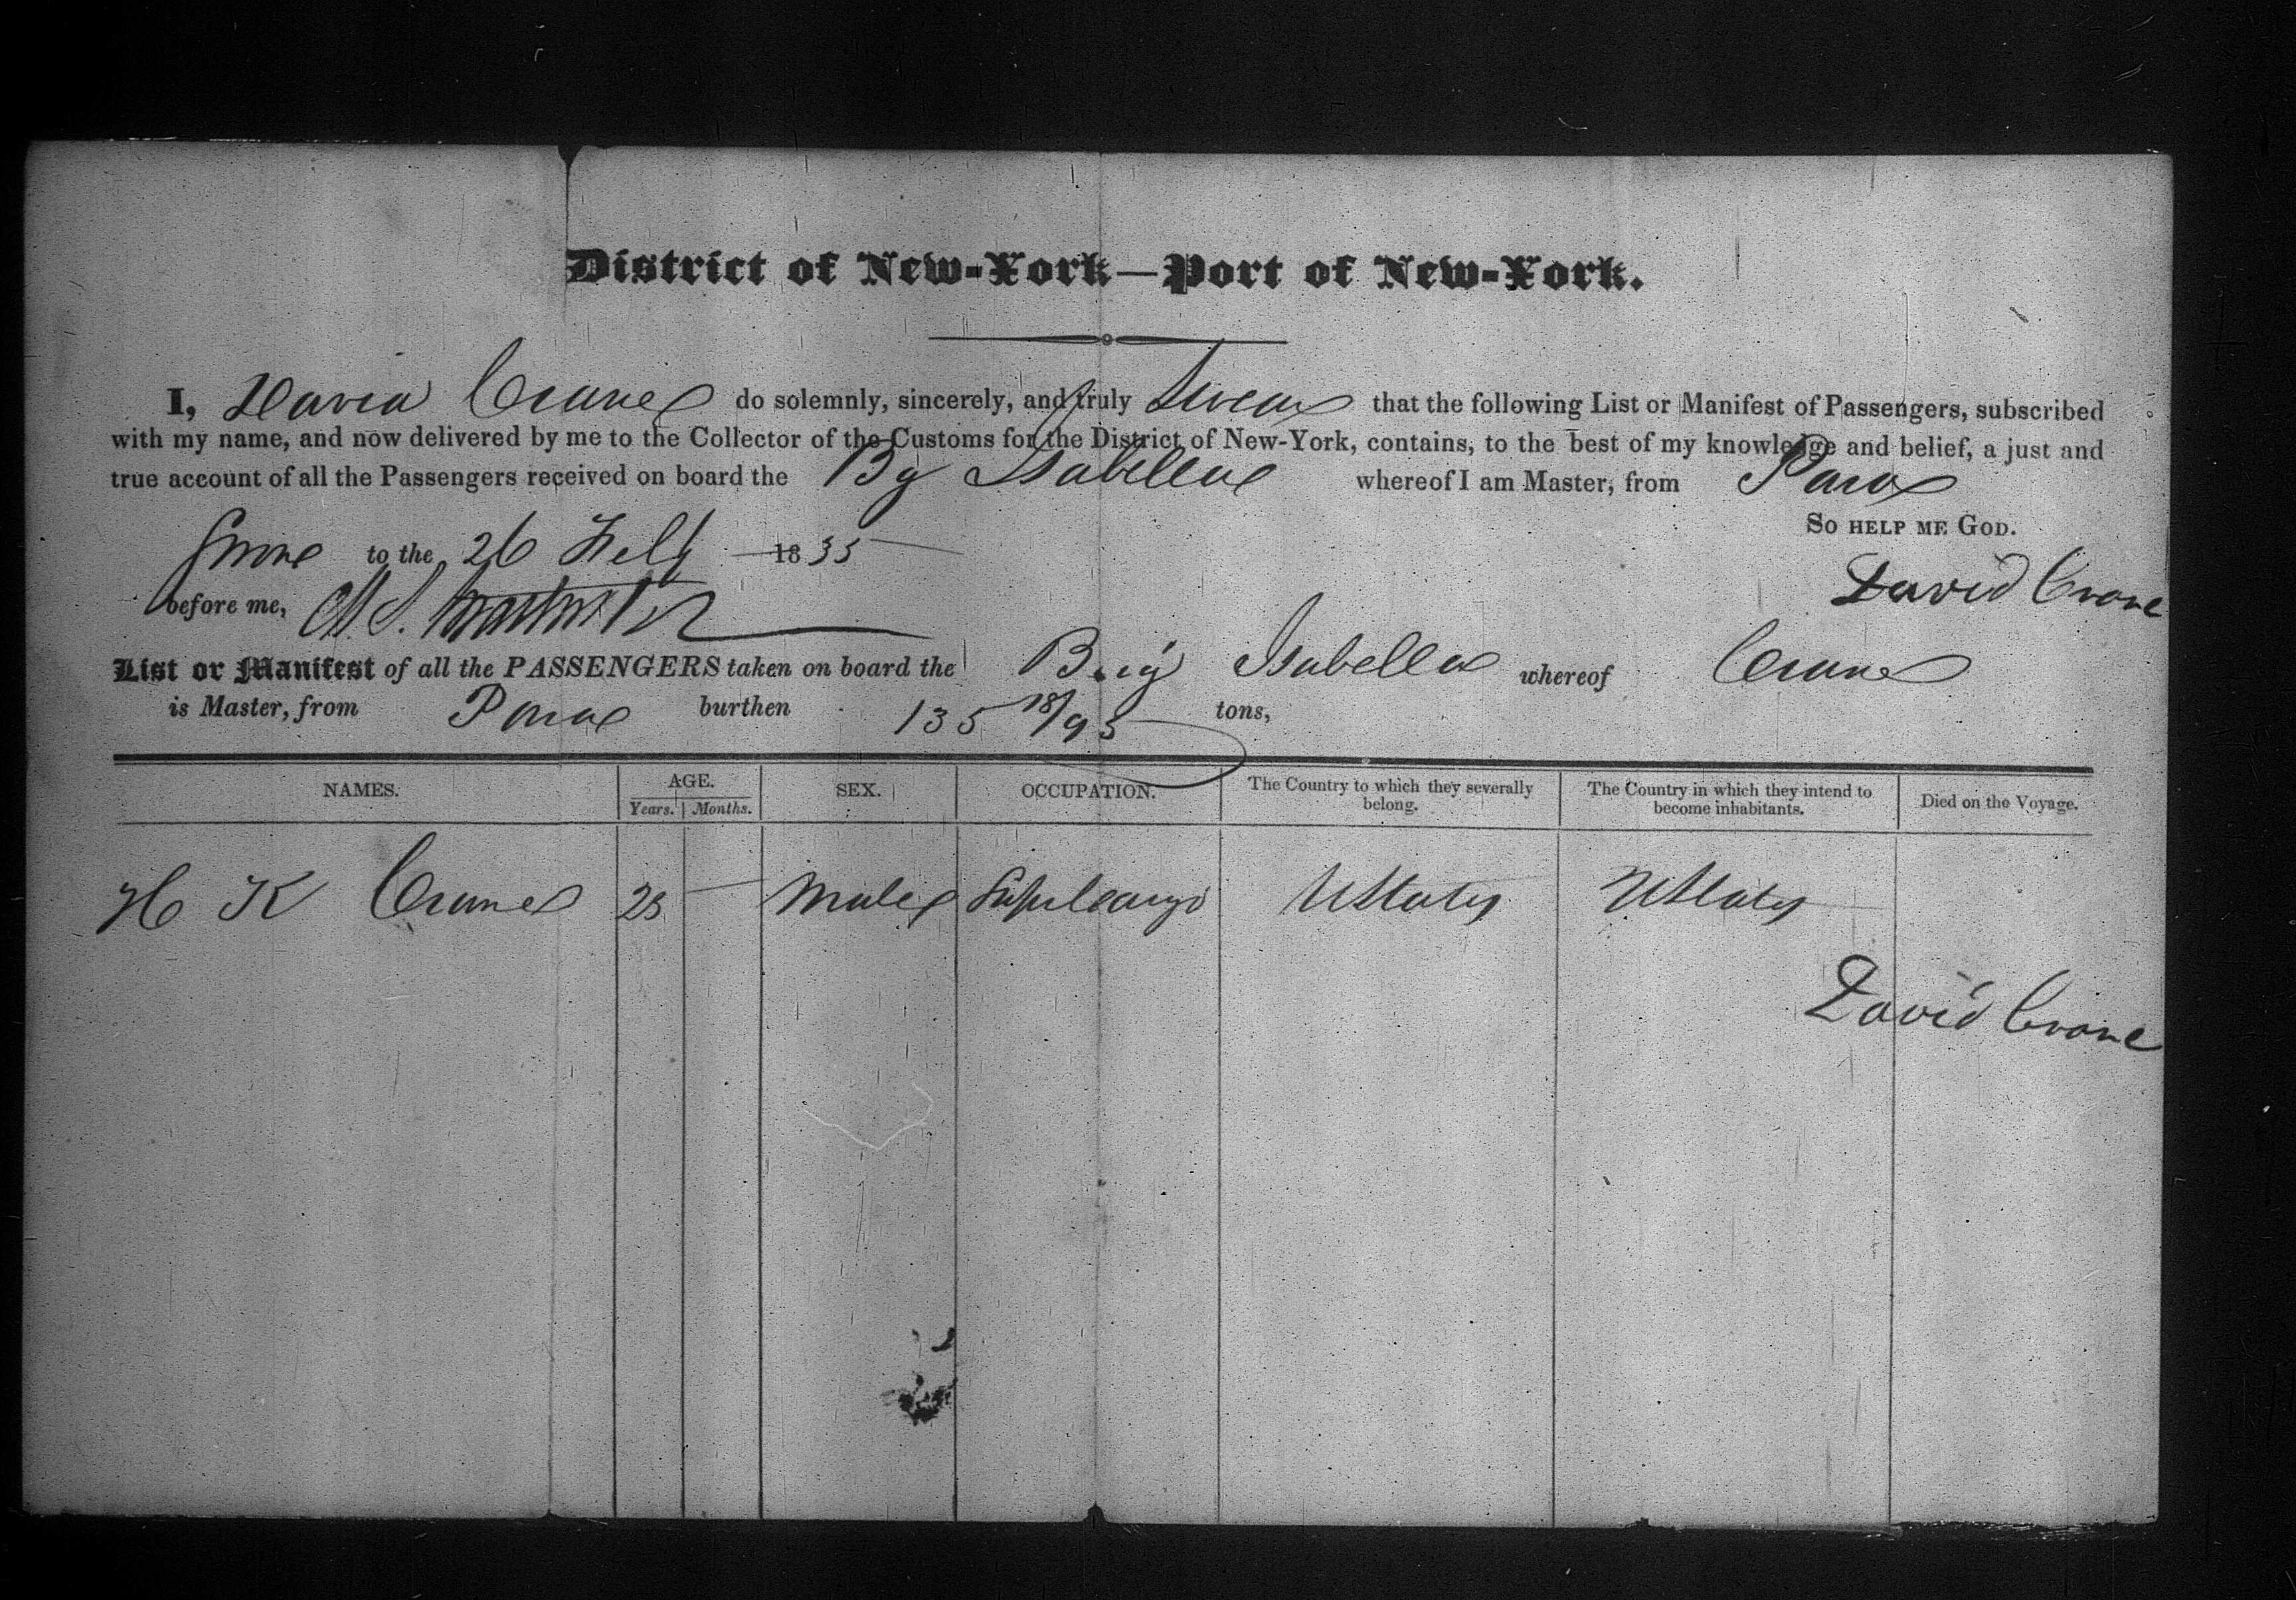 District of New-York—Port of New-York.
I, David Crane do solemnly, sincerely, and truly Swear that the following List or Manifest of Passengers, subscribed
with my name, and now delivered by me to the Collector of the Customs for the District of New-York, contains, to the best of my knowledge and belief, a just and
true account of all the Passengers received on board the Bg Isabella whereof I am Master, from Para
So help me God.
to the 26 Feby 1835
David Crane
before me, M. S.
List or Manifest of all the PASSENGERS taken on board the Brig Isabella whereof Crane
is Master, from Para burthen 135 18/95 tons,
NAMES. AGE. SEX. OCCUPATION. The Country to which they severally belong. The Country in which they intend to become inhabitants. Died on the Voyage.
Years. Months.
H K Crane 23 — Male Supercargo UStates UStates
David Crane